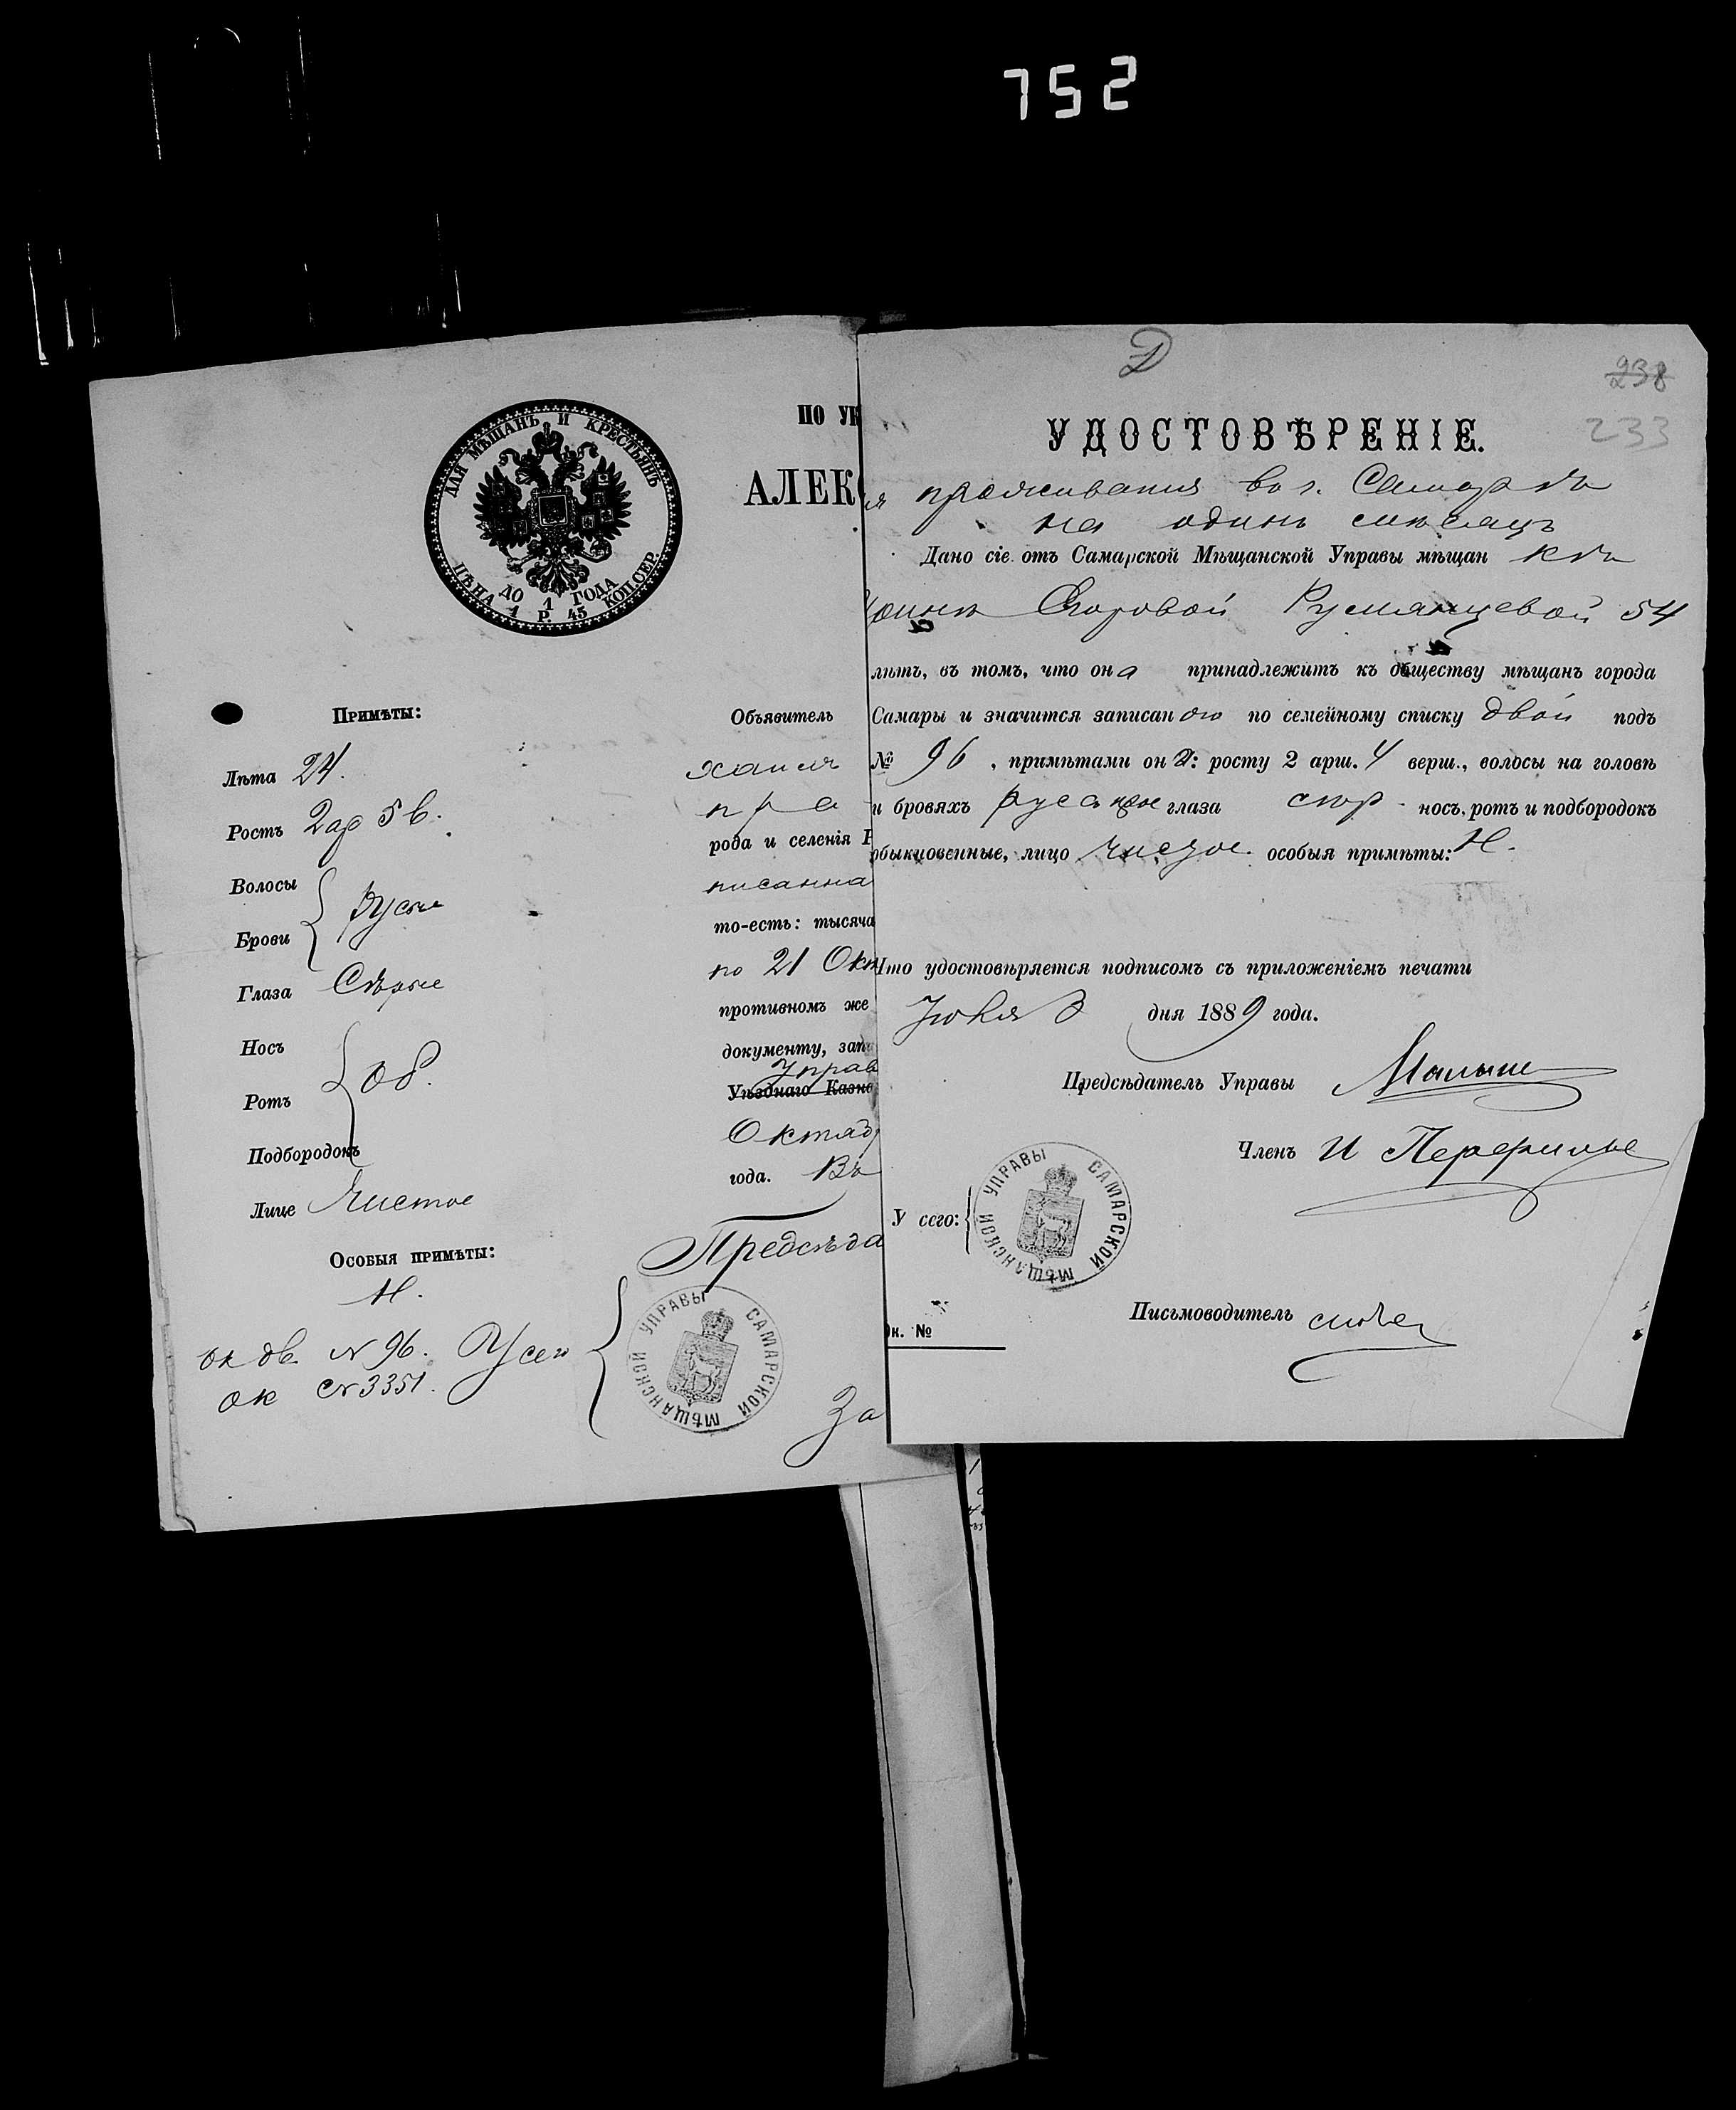 752
ДЛЯ МѢЩАНЪ И КРЕСТЬЯНЪ
ДО 1 ГОДА
ЦѢНА 1 Р. 45 КОП. СЕР.
ПО УК
АЛЕК
Примѣты:
Лѣта 24.
Ростъ 2 ар 5 в.
Волосы
Брови
русые
Глаза Сѣрые
Носъ
Ротъ
Подбородокъ
об.
Лице Чистое
Особыя примѣты:
Н.
№ 96. У сего
№ 3351.
САМАРСКОЙ МѢЩАНСКОЙ УПРАВЫ
Объявитель
рода и селенія Р
писанна
то-есть: тысяча
по 21 Окт
противномъ же
документу, зап
Управ
Уѣзднаго Казне
Октяб
года. Въ
Предсѣда
За
Д
238
233
УДОСТОВѢРЕНІЕ.
я проживанія въ г. Самарѣ
на одинъ мѣсяцъ
Дано сіе отъ Самарской Мѣщанской Управы мѣщан кѣ
Егоровой Румянцевой 54
лѣтъ, въ томъ, что она принадлежитъ къ обществу мѣщанъ города
Самары и значится записан ою по семейному списку двой подъ
№ 96, примѣтами она: росту 2 арш. 4 верш., волосы на головѣ
и бровяхъ русые глаза сѣр носъ, ротъ и подбородокъ
обыкновенные, лицо чистое особыя примѣты: Н.
Что удостовѣряется подписомъ съ приложеніемъ печати
Іюля 3 дня 1889 года.
Предсѣдатель Управы
Членъ И
У сего:
САМАРСКОЙ МѢЩАНСКОЙ УПРАВЫ
Письмоводитель
Ок. №